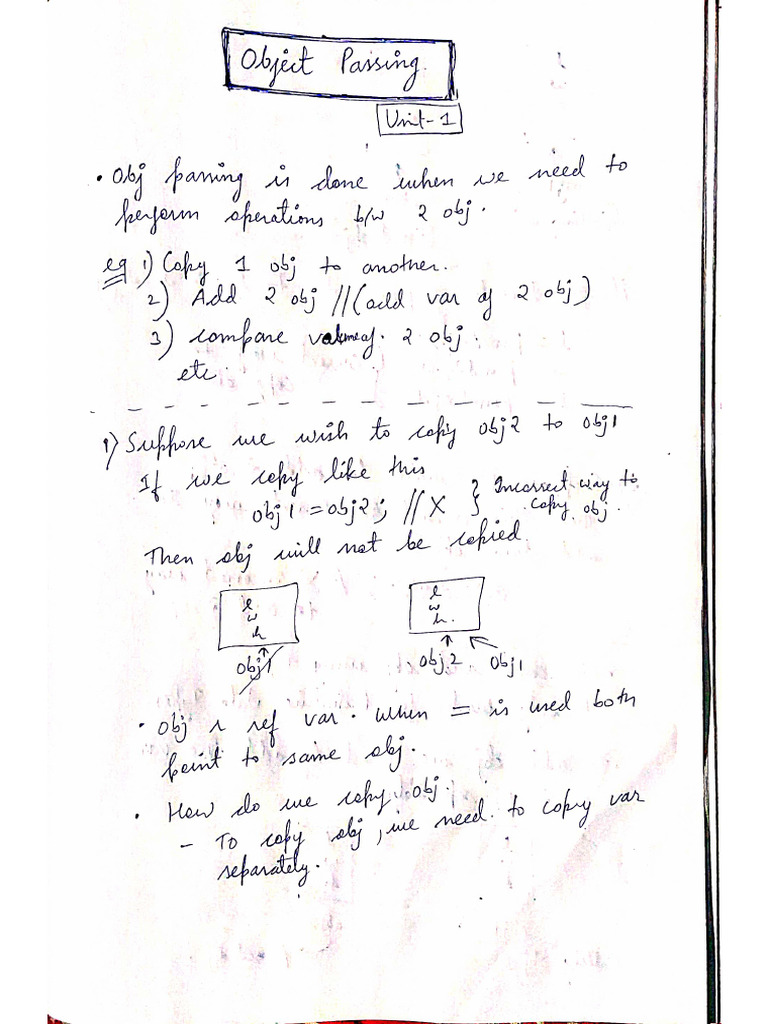 Object Passing.
Unit-1
• Obj passing is done when we need to
perform operations b/w 2 obj.
eg 1) Copy 1 obj to another.
2) Add 2 obj //(add var of 2 obj)
3) compare values of 2 obj.
etc.
1) Suppose we wish to copy obj2 to obj1
If we copy like this
obj1 = obj2; // X } Incorrect way to
copy obj.
Then obj will not be copied.
l l
w w
h h.
obj1 obj2 obj1
• Obj r ref var. when = is used both
point to same obj.
• How do we copy obj.
- To copy obj, we need to copy var
separately.